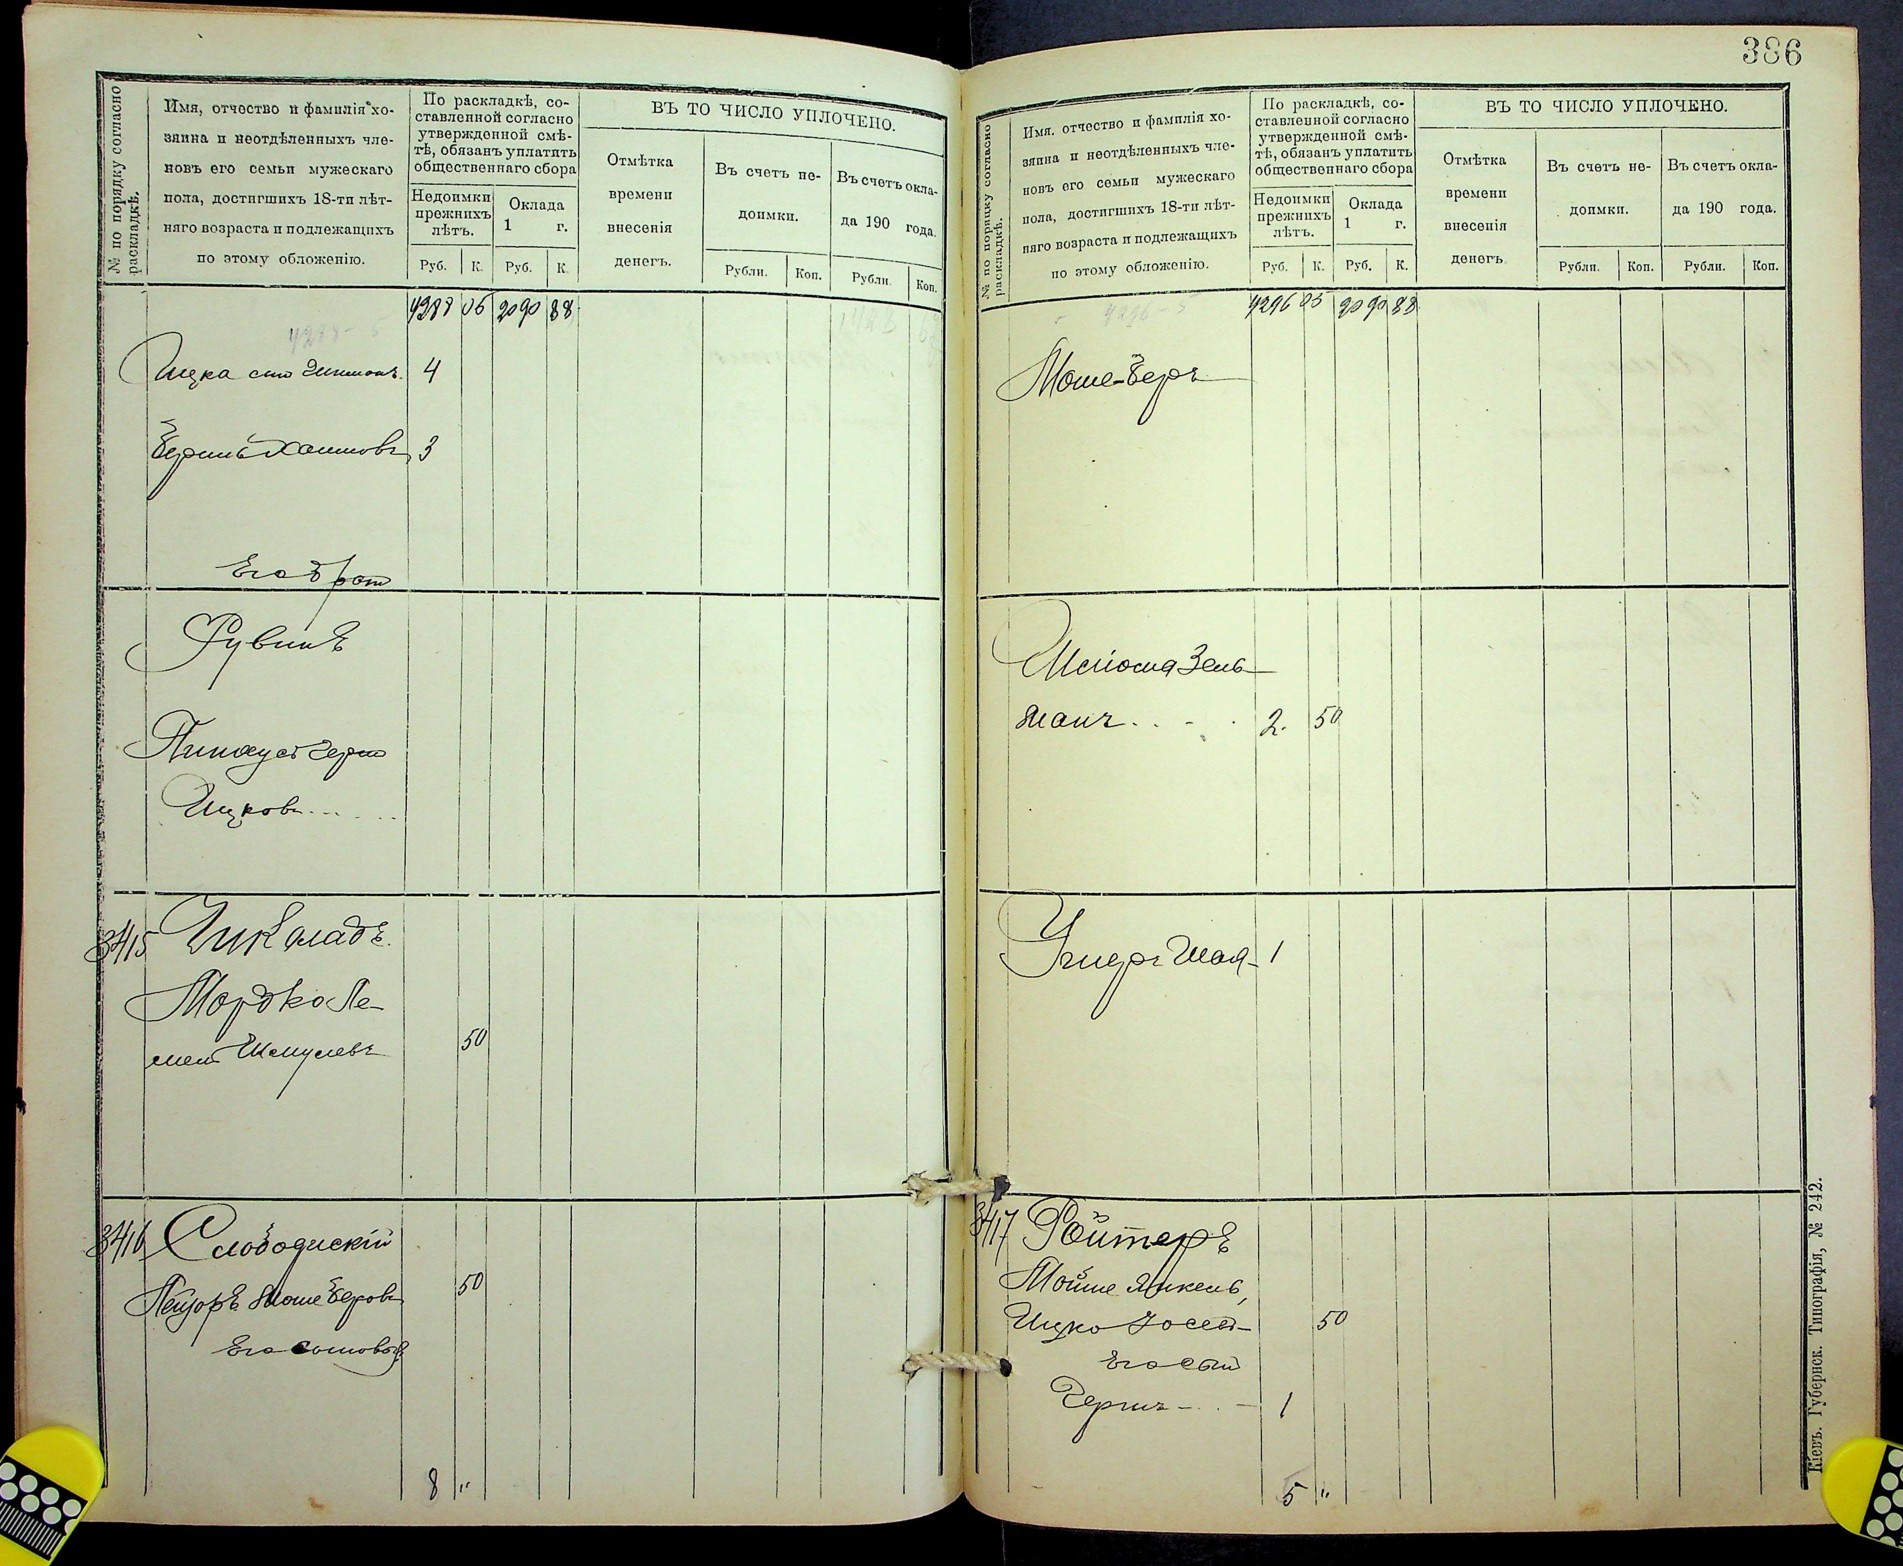 № по порядку согласно раскладкѣ.
Имя, отчество и фамилія хо-
зяина и неотдѣленныхъ чле-
новъ его семьи мужескаго
пола, достигшихъ 18-ти лѣт-
няго возраста и подлежащихъ
по этому обложенію.
По раскладкѣ, со-
ставленной согласно
утвержденной смѣ-
тѣ, обязанъ уплатить
общественнаго сбора
Недоимки
прежнихъ
лѣтъ.
Оклада
1 г.
Руб. К. Руб. К.
ВЪ ТО ЧИСЛО УПЛОЧЕНО.
Отмѣтка
времени
внесенія
денегъ.
Въ счетъ не-
доимки.
Рубли. Коп.
Въ счетъ окла-
да 190 года.
Рубли. Коп.
4288 05 2090 88
Ицка 4
Хаимовъ 3
Его братъ
Рувинъ
Пинхусъ Герш
Ицковъ
3415 Чиколадъ
Мордко Ле-
Шмулевъ 50
3416 Слободискій
Лейзоръ Моше Беровъ 50
Его сыновья
8 "
386
№ по порядку согласно раскладкѣ.
Имя, отчество и фамилія хо-
зяина и неотдѣленныхъ чле-
новъ его семьи мужескаго
пола, достигшихъ 18-ти лѣт-
няго возраста и подлежащихъ
по этому обложенію.
По раскладкѣ, со-
ставленной согласно
утвержденной смѣ-
тѣ, обязанъ уплатить
общественнаго сбора
Недоимки
прежнихъ
лѣтъ.
Оклада
1 г.
Руб. К. Руб. К.
ВЪ ТО ЧИСЛО УПЛОЧЕНО.
Отмѣтка
времени
внесенія
денегъ.
Въ счетъ не-
доимки.
Рубли. Коп.
Въ счетъ окла-
да 190 года.
Рубли. Коп.
4296 05 2090 88
Моше-Беръ
Шлиома Зель-
манъ 2. 50
Шая 1
3417 Ройтеръ
Мойше Янкель,
Ицко Іосей 50
Его сынъ
Гершъ 1
5 "
Кіевъ. Губернск. Типографія, № 242.